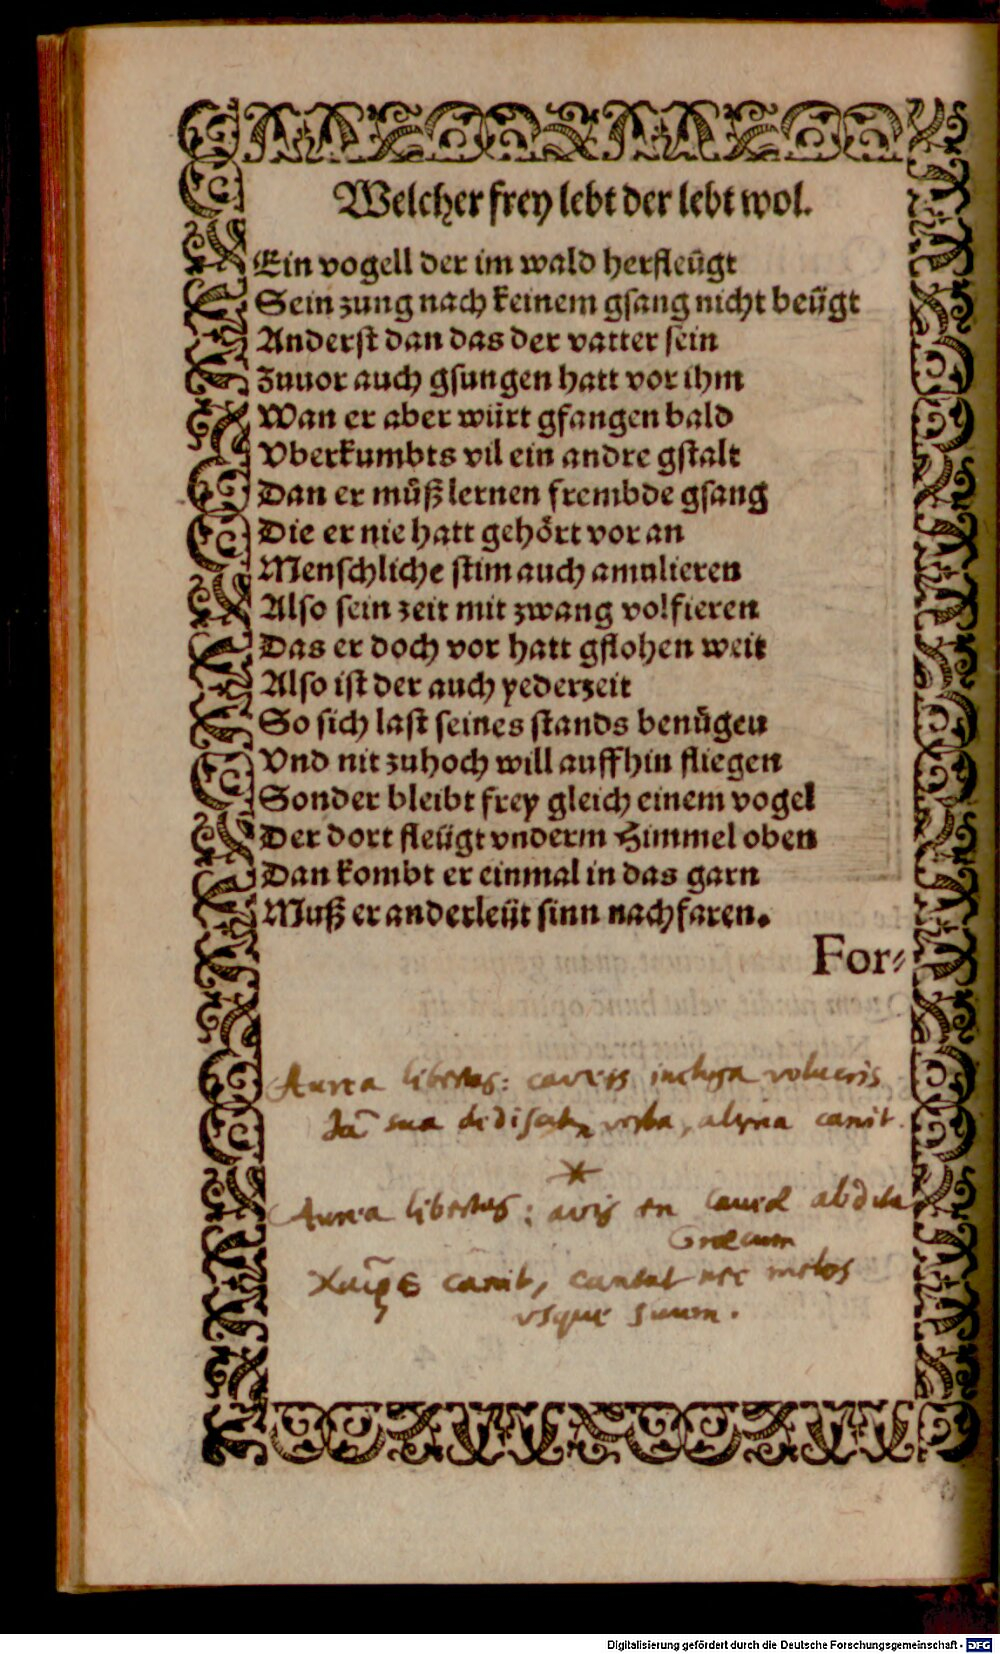 Welcher frey lebt der lebt wol.
Ein vogell der im wald herfleügt
Sein zung nach keinem gsang nicht beügt
Anderst dan das der vatter sein
Zuuor auch gsungen hatt vor ihm
Wan er aber würt gfangen bald
Vberkumbts vil ein andre gstalt
Dan er müß lernen frembde gsang
Die er nie hatt gehört vor an
Menschliche stim auch amulieren
Also sein zeit mit zwang volfieren
Das er doch vor hatt gflohen weit
Also ist der auch yederzeit
So sich last seines stands benügen
Vnd nit zuhoch will auffhin fliegen
Sonder bleibt frey gleich einem vogel
Der dort fleügt vnderm Himmel oben
Dan kombt er einmal in das garn
Muß er anderleüt sinn nachfaren.
For⸗
Aurea libertas: caveis inclusa volucris
Jā sua dediscit verba, aliena canit.
*
Aurea libertas: avis en caveâ abdita
Græcum
Χαῖρε canit, cantat nec melos
usque suum.
Digitalisierung gefördert durch die Deutsche Forschungsgemeinschaft - DFG